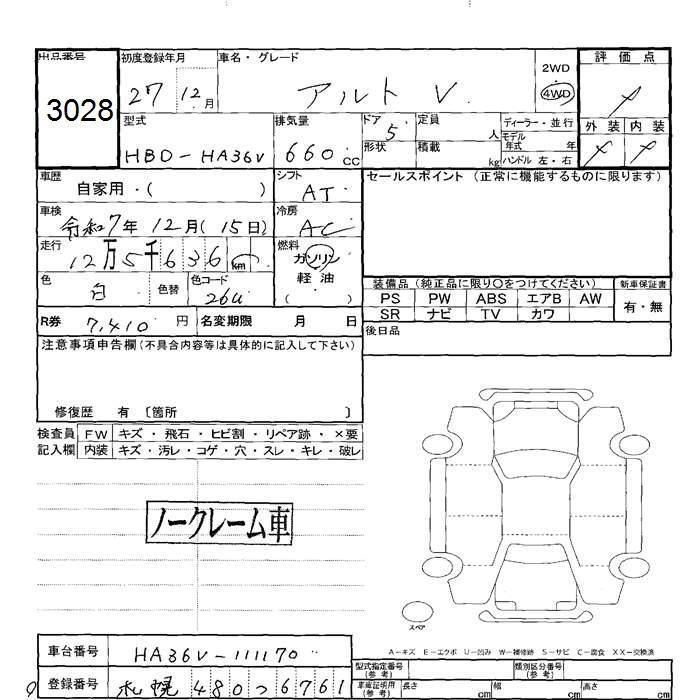 出品番号
3028
初度登録年月
27 12月
車名・グレード
アルト V
2WD
4WD
評価点
型式
HBD-HA36V
排気量
660cc
ドア
5
定員
人
ディーラー・並行
モデル
年式 年
形状
積載
kg
ハンドル 左・右
外装 内装
車歴
自家用・( )
シフト
AT
セールスポイント (正常に機能するものに限ります)
車検
令和7年 12月(15日)
冷房
AC
走行
12万5千636km
燃料
ガソリン
軽油
( )
色
白
色替
色コード
26U
装備品 (純正品に限り〇をつけてください)
新車保証書
PS PW ABS エアB AW
有・無
SR ナビ TV カワ
R券 7,410円 名変期限 月 日
後日品
注意事項申告欄(不具合内容等は具体的に記入して下さい)
修復歴 有 〔箇所 〕
検査員 FW キズ・飛石・ヒビ割・リペア跡・×要
記入欄 内装 キズ・汚レ・コゲ・穴・スレ・キレ・破レ
ノークレーム車
スペア
A-キズ E-エクボ U-凹み W-補修跡 S-サビ C-腐食 XX-交換済
車台番号 HA36V-111170
型式指定番号
(参考)
類別区分番号
(参考)
登録番号 札幌 480つ6761
車庫証明用
(参考)
長さ cm 幅 cm 高さ cm